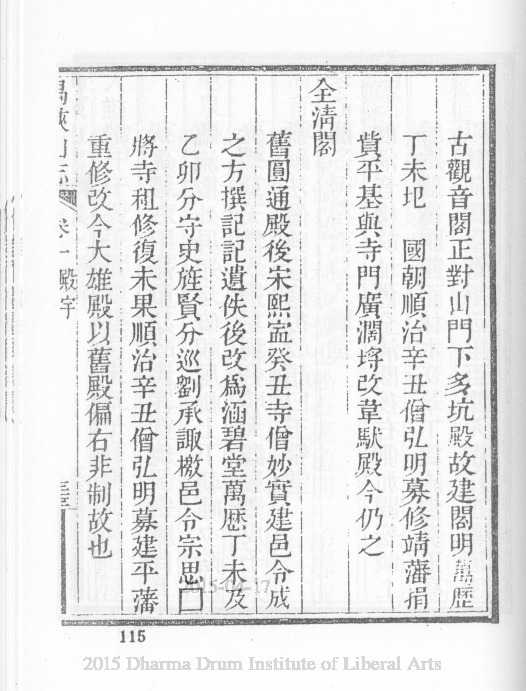 古觀音閣正對山門下多坑殿故建閣明萬歷
丁未圯 國朝順治辛丑僧弘明募修靖藩捐
貲平基與寺門廣濶埓改韋馱殿今仍之
全清閣
舊圓通殿後宋熙寍癸丑寺僧妙實建邑令成
之方撰記記遺佚後改爲涵碧堂萬歷丁未及
乙卯分守史旌賢分巡劉承諏檄邑令宗思囗
將寺租修復未果順治辛丑僧弘明募建平藩
重修改今大雄殿以舊殿偏右非制故也
卷一 殿宇
115
2015 Dharma Drum Institute of Liberal Arts